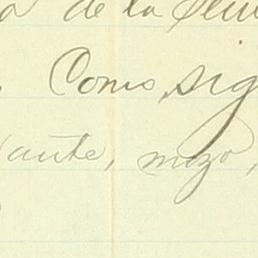 de la
Como sig
ante, mozo,